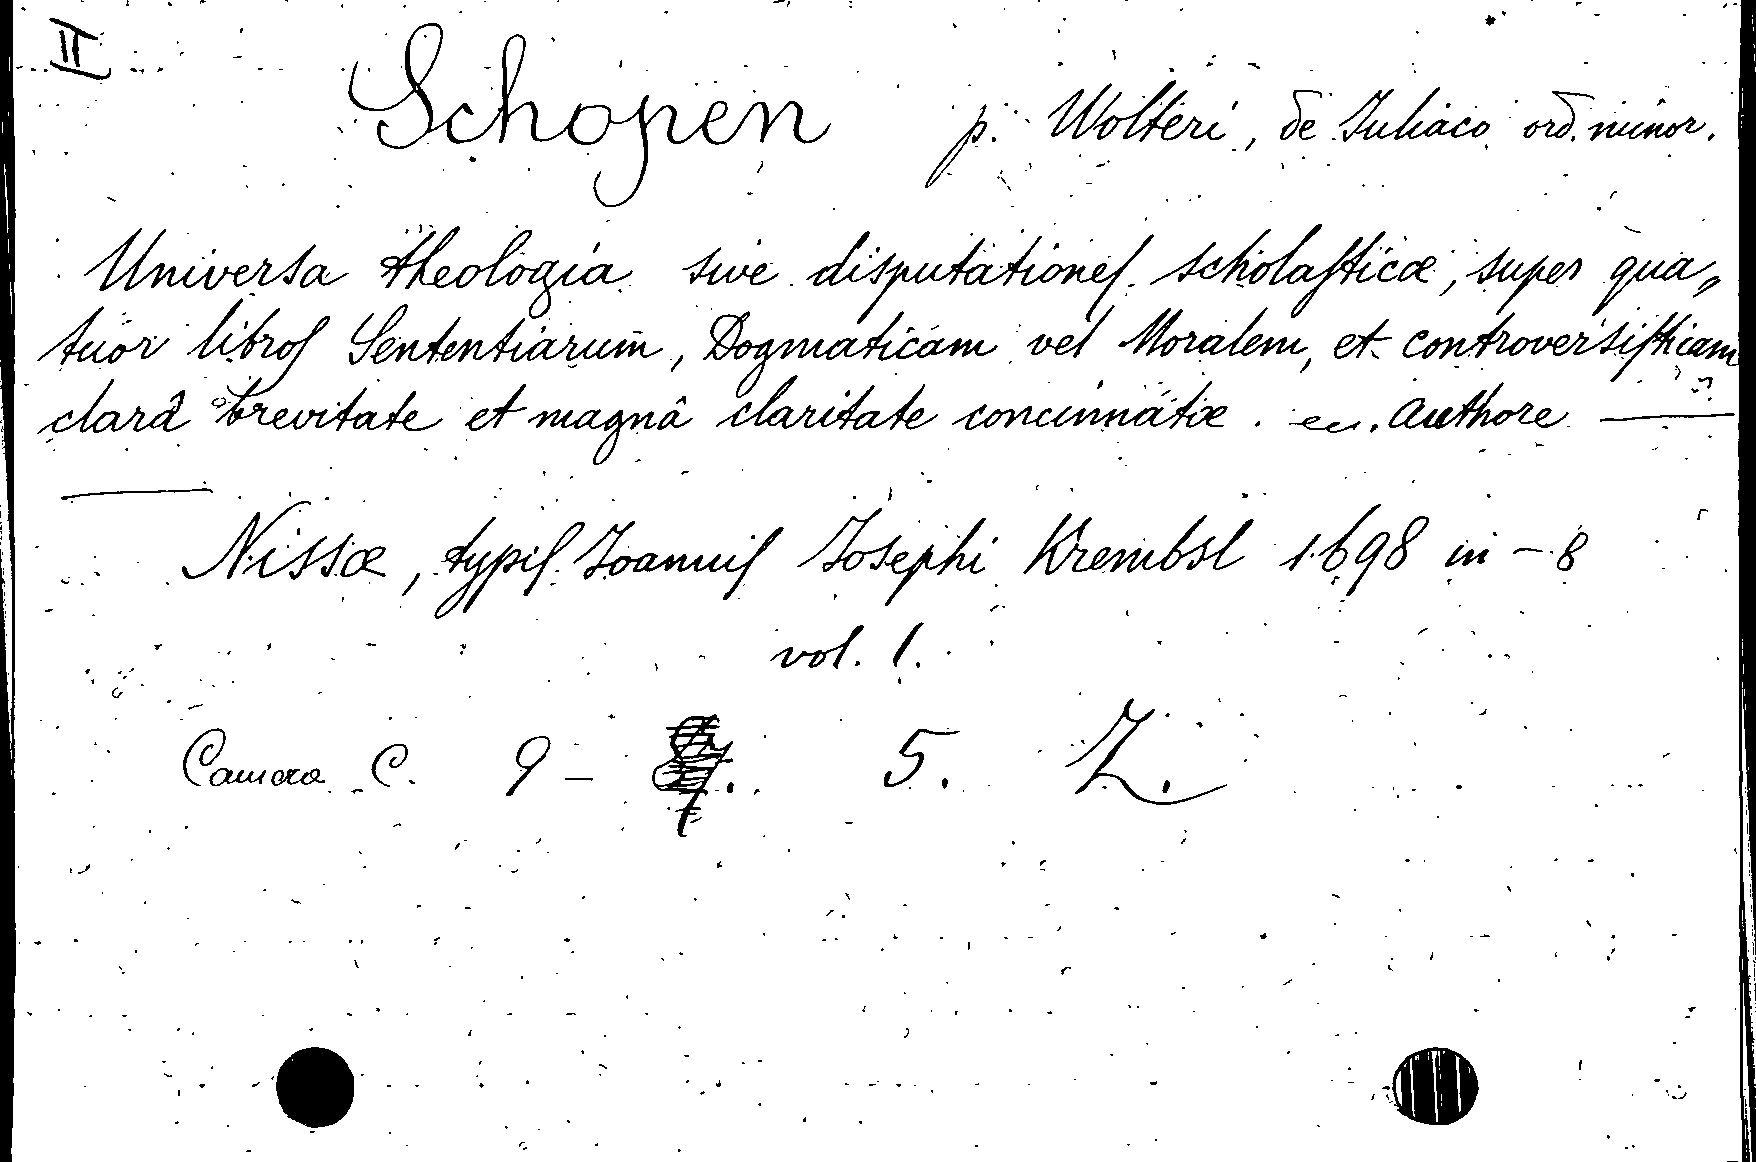 II
Schopen p. Wolteri, de Juliaco ord. minor.
Universa theologia sive disputationeſ scholaſticæ, super qua„
tuor libroſ Sententiarum, Dogmaticam vel Moralem, et controversiſticam
clarâ brevitate et magnâ claritate concinnatæ. ec. Authore —
—
Nissæ, typiſ Joanniſ Josephi Krembsl 1698 in – 8
vol. 1.
Camera C. 9 – 5. Z.